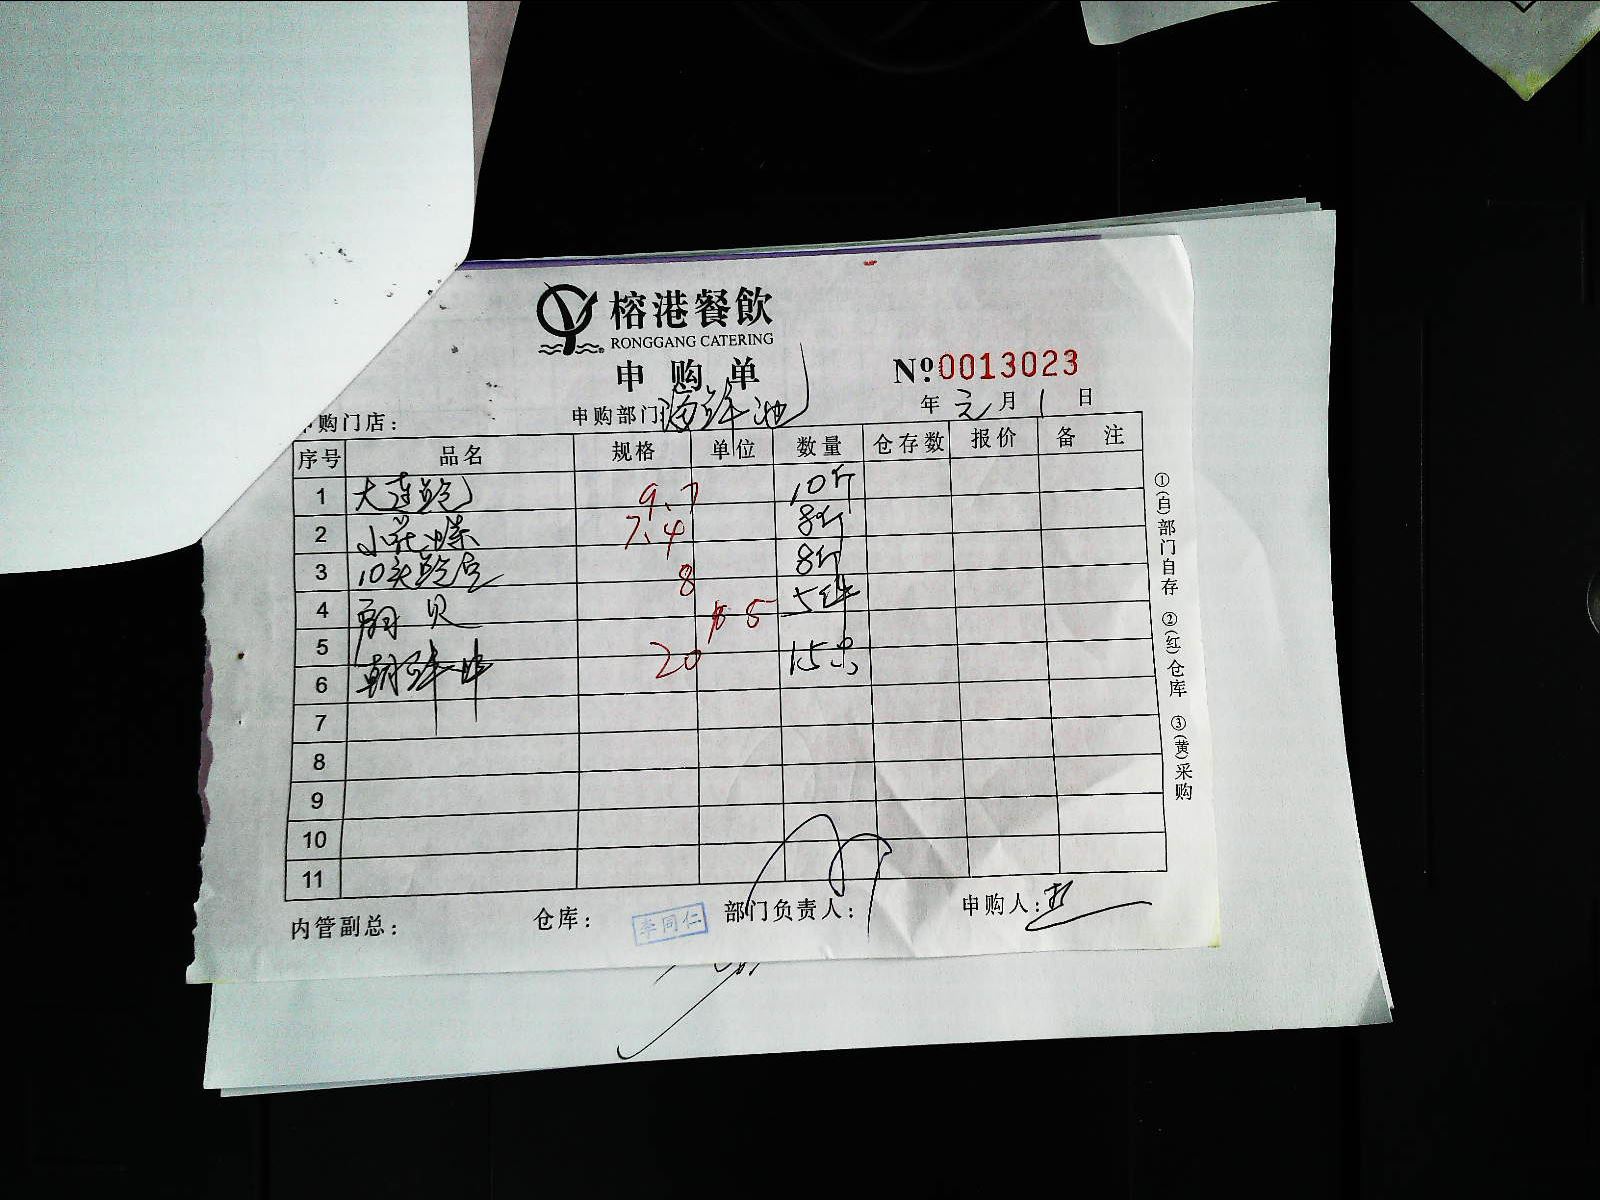 榕港餐飲
RONGGANG CATERING
申购单
Nº 0013023
申购门店： 申购部门 海鲜池 年 元 月 1 日
序号 品名 规格 单位 数量 仓存数 报价 备注
1 大连鲍 9.7 10斤
2 小花螺 7.4 8斤
3 10头鲍 8 8斤
4 贝 5 5
5
6 朝鲜 20 15
7
8
9
10
11
内管副总： 仓库： 李同仁 部门负责人： 申购人：
①(白)部门自存 ②(红)仓库 ③(黄)采购